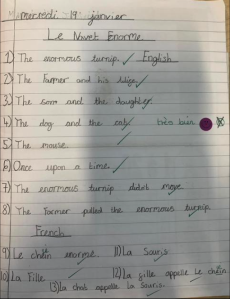 mercredi 19 janvier
Le Navet Enorme
1) The enormous turnip. English
2) The Farmer and his
3) The son and the daughter
4) The dog and the cat très bien
5) The mouse
6) Once upon a time.
7) The enormous turnip move
8) The Farmer pulled the enormous turnip
French
9) Le enorme 11) La Souris
10) La Fille 12) La fille appelle Le
13) La chat appelle La Souris.